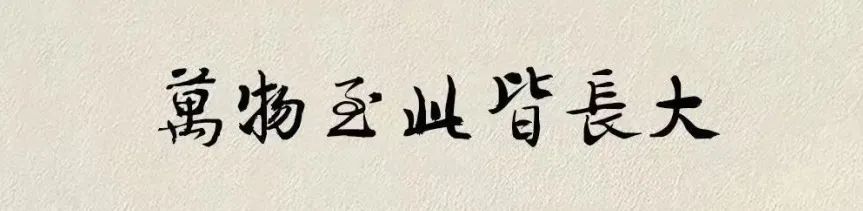 萬物至此皆長大